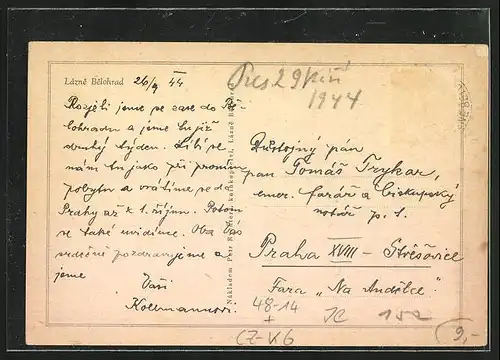 Lázně Bělohrad 26/9 44
Rozjeli jsme se zase do Bě-
lohradu a jsme tu již
druhý týden. Líbí se
nám tu jako při prvním
pobytu a vrátíme se do
Prahy až k 1. říjnu. Potom
se také uvidíme. Oba Vás
srdečně pozdravujeme a
jsme
Vaši
Kollmannovi.
Nákladem Petr knihkupectví, Lázně
29 září
1944
Důstojný pan
pan Tomáš Trykar,
emer. farář a biskupský
notář p. t.
Praha XVIII – Střešovice
Fara „Na Andělce"
48-14
+
CZ-V6
JC 152
9,-